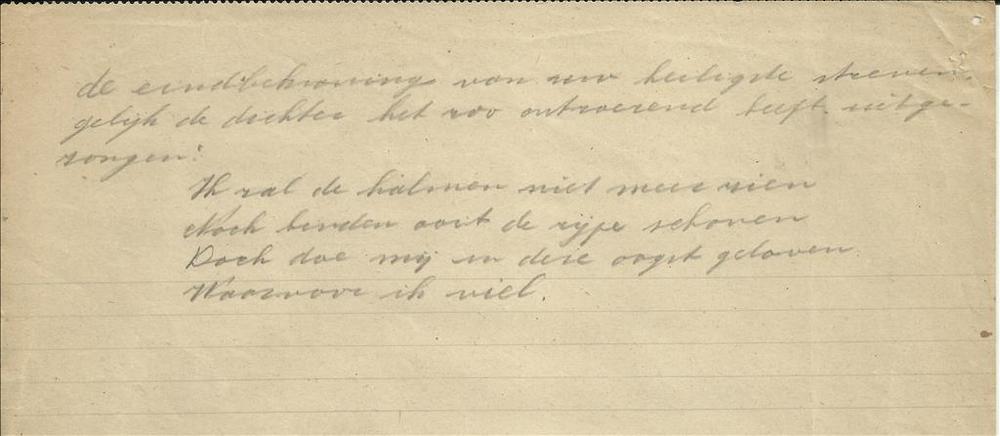 de eindbekroning van uw heiligste streven.
gelijk de dichter het zoo ontroerend heeft uitge-
zongen:
Ik zal de halmen niet meer zien
Noch binden ooit de rijpe schoven
Doch doe mij in deze oogst geloven
Waarvoor ik viel.